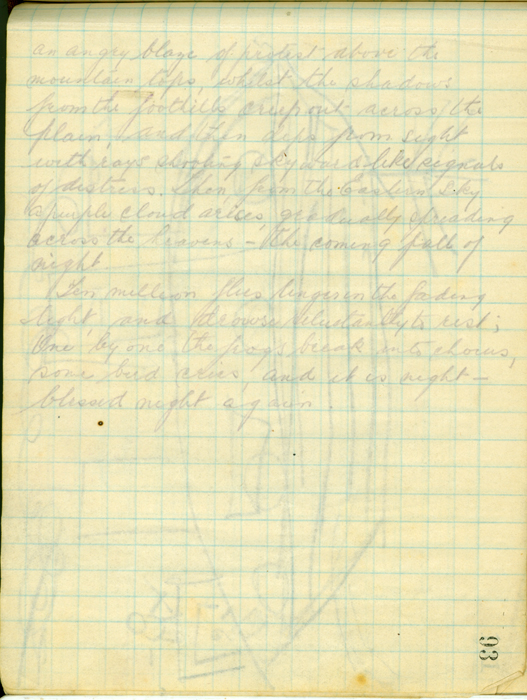 an angry blaze of protest above the
mountain tops, whilst the shadows
from the foothills creep out across the
plain, and then dips from sight
with rays shooting skyward like signals
of distress. Then from the Eastern sky
a purple cloud arises, gradually spreading
across the heavens – the coming fall of
night.
Ten million flies linger in the fading
light, and reluctantly to rest;
One by one the frogs break into chorus,
some bird cries, and it is night –
blessed night again.
93